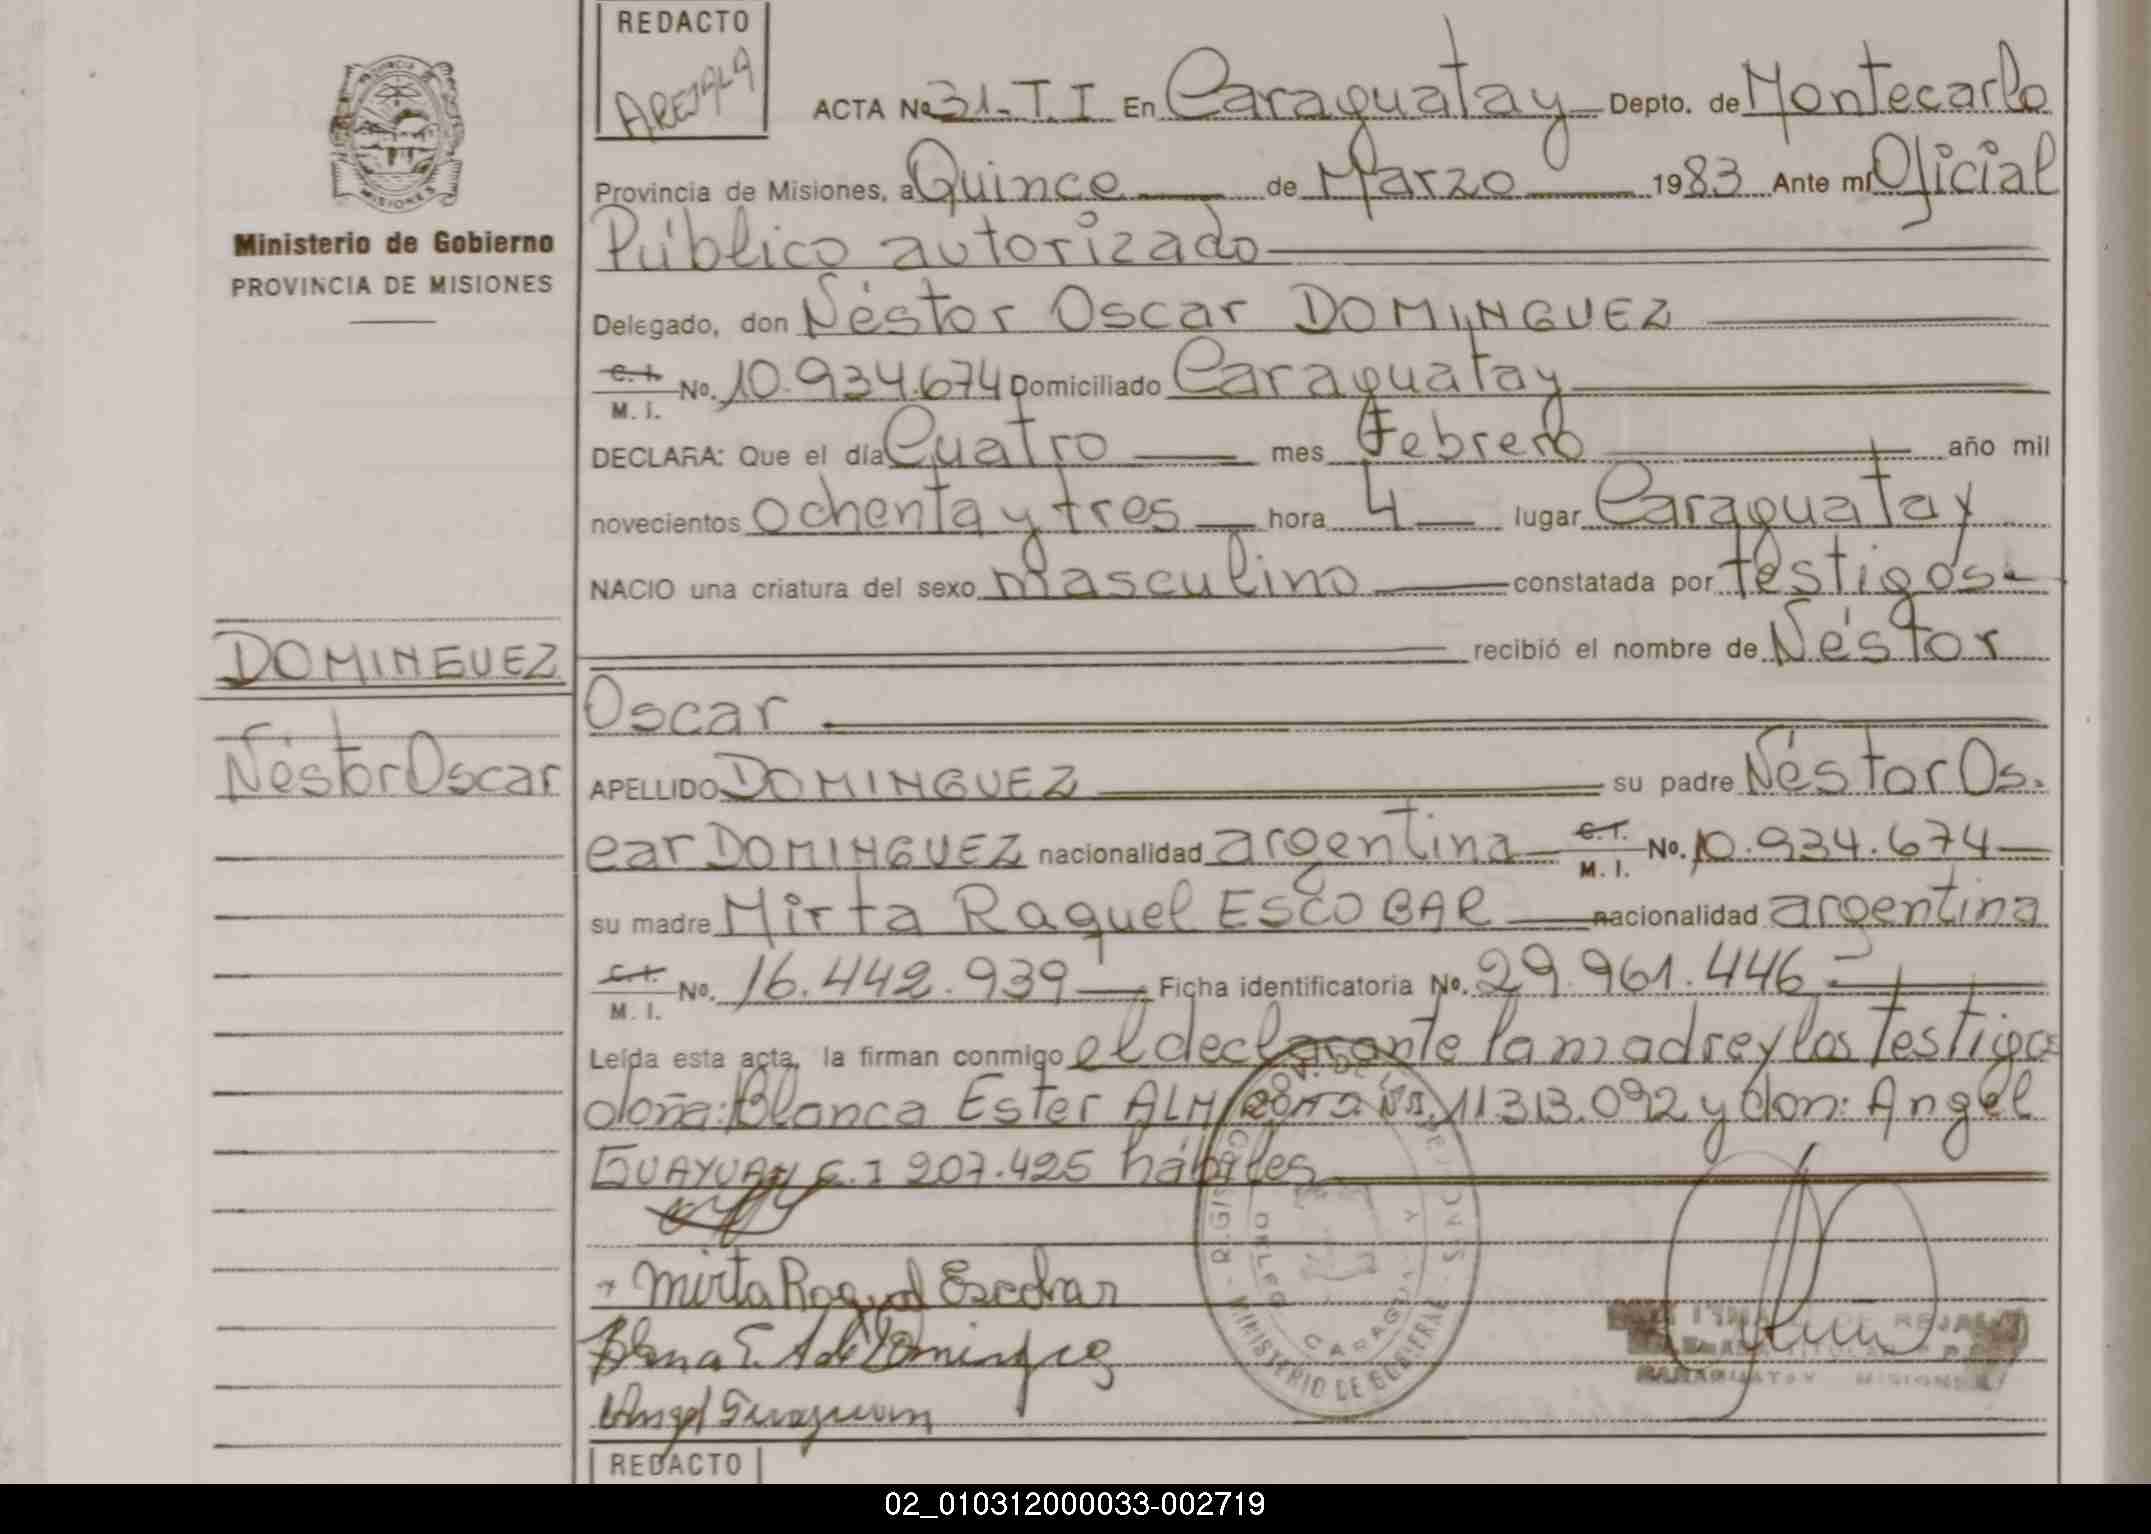 REDACTO
AREJALA
ACTA No 31-T.I En Caraguatay Depto. de Montecarlo
Provincia de Misiones, a Quince de Marzo 1983 Ante mí Oficial
Público autorizado
Delegado, don Néstor Oscar DOMINGUEZ
C. I. M. I. No. 10.934.674 Domiciliado Caraguatay
DECLARA: Que el día Cuatro mes Febrero año mil
novecientos ochenta y tres hora 4 lugar Caraguatay
NACIO una criatura del sexo masculino constatada por testigos-
recibió el nombre de Néstor
Oscar
APELLIDO DOMINGUEZ su padre Néstor Os-
car DOMINGUEZ nacionalidad argentina C. I. M. I. No. 10.934.674
su madre Mirta Raquel ESCOBAR nacionalidad argentina
C. I. M. I. No. 16.442.939 Ficha identificatoria No. 29.961.446
Leída esta acta, la firman conmigo el declarante la madre y los testigos
doña: Blanca Ester 11.313.092 y don: Angel
GUAYUAN C.I 207.425 hábiles
Mirta Raquel Escobar
Angel Guayuan
MINISTERIO DE GOBIERNO
CARAGUATAY MISIONES
REDACTO
PROVINCIA DE
MISIONES
Ministerio de Gobierno
PROVINCIA DE MISIONES
DOMINGUEZ
Néstor Oscar
02_010312000033-002719